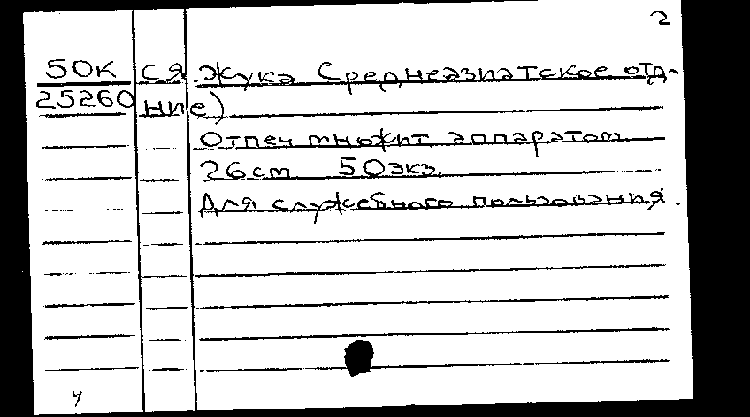 2
50к ся жука Среднеазиатское отд-
25260 ние)
Отпеч множит аппаратом
26см 50экз
Для служебного пользования.
4